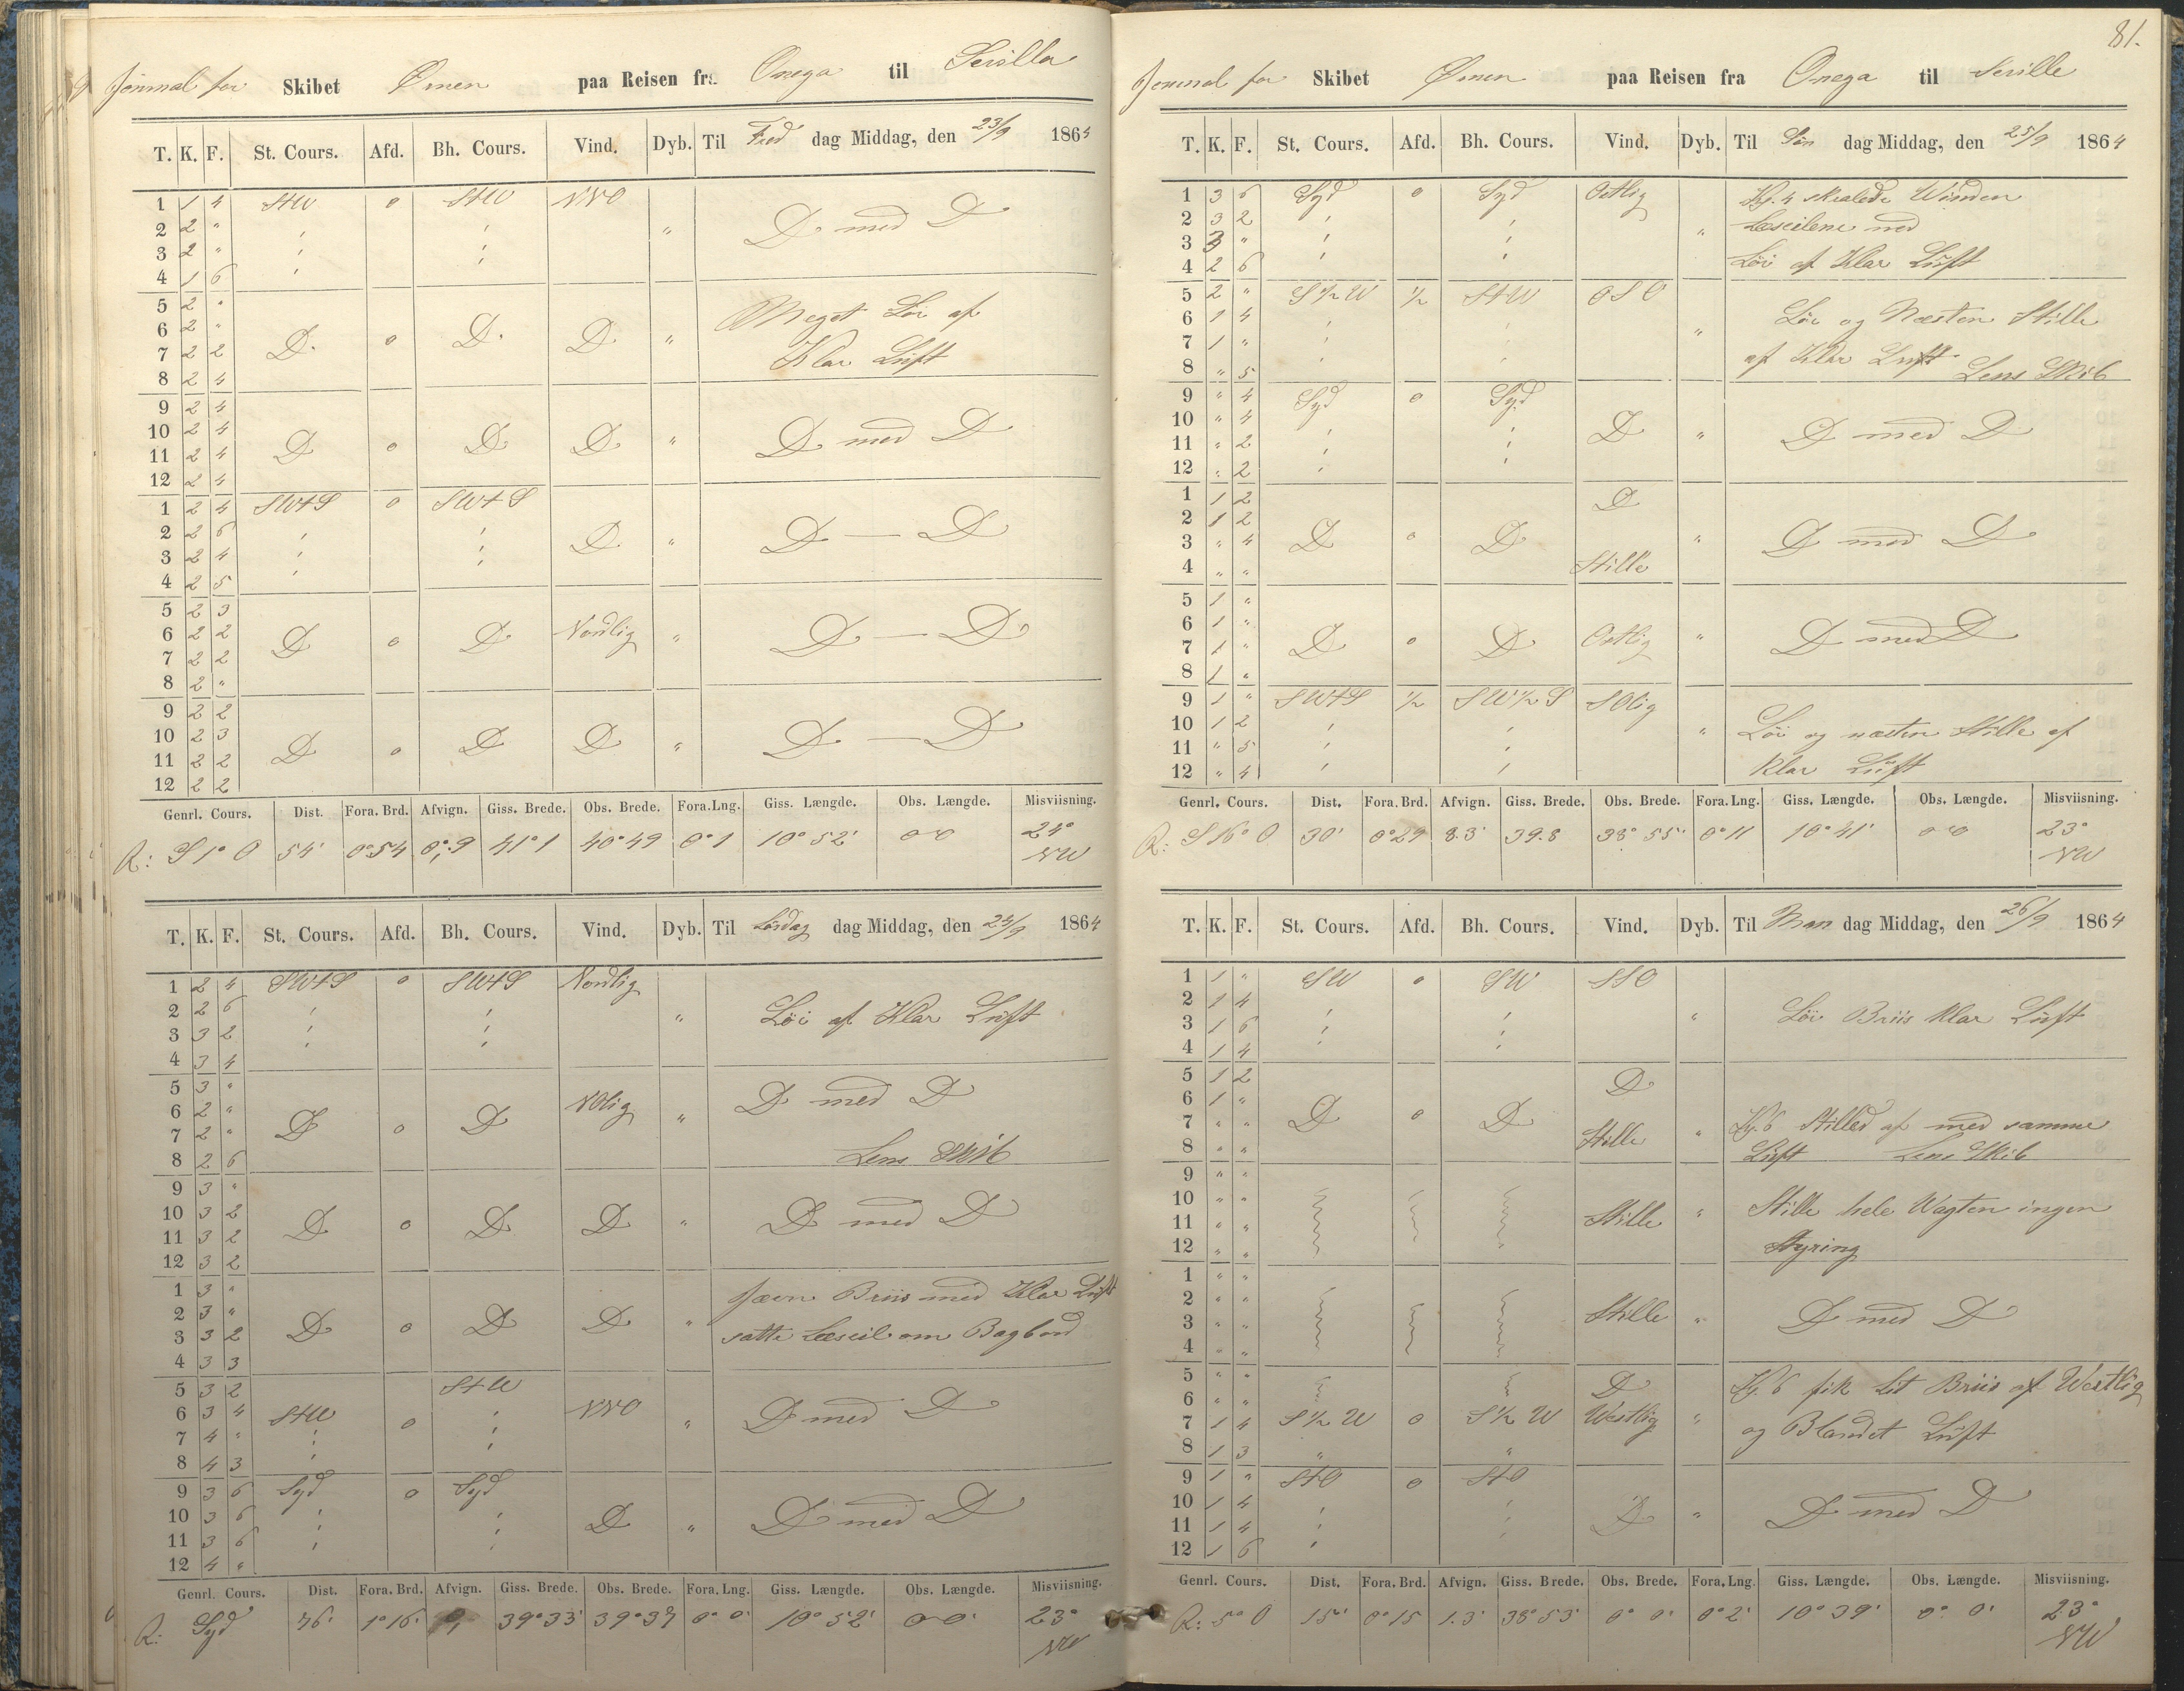 Journal for Skibet Ørnen paa Reisen fra Onega til Sevilla
T. K. F. St. Cours. Afd. Bh. Cours. Vind. Dyb. Til Fredag Middag, den 23/9 1864
1 1 4 StW o StW NNO
2 2 " ' ' " D med D
3 2 " ' '
4 1 6 '
5 2 " Meget Löi af
6 2 "
7 2 2 D. o D. D "
8 2 4 Klar Luft
9 2 4
10 2 4
11 2 4 D o D D " D med D
12 2 4
1 2 4 SWtS o SWtS
2 2 6 ' '
3 2 4 ' ' D " D — D
4 2 5 '
5 2 3
6 2 2 D o D Nordlig " D — D
7 2 2
8 2 "
9 2 2
10 2 3
11 2 2 D o D D " D — D
12 2 2
Genrl. Cours. Dist. Fora. Brd. Afvign. Giss. Brede. Obs. Brede. Fora. Lng. Giss. Længde. Obs. Længde. Misviisning.
R: S 1° O 54' 0°54 0°,9 41°1 40°49 0°1 10°52' 0°0 24°
NW
T. K. F. St. Cours. Afd. Bh. Cours. Vind. Dyb. Til Lördag dag Middag, den 24/9 1864
1 2 4 SWtS o SWtS Nordlig
2 2 6 ' ' " Löi af Klar Luft
3 3 2 ' '
4 3 4 ' '
5 3 "
6 2 " NOlig D med D
7 2 " D o D "
8 2 6 Lens Skib
9 3 "
10 3 2
11 3 2 D o D D " D med D
12 3 2
1 3 " Jævn Briis med Klar Luft
2 3 "
3 3 2 D o D D " satte Læseil om Bagbord
4 3 3
5 3 2 StW
6 3 4 StW o ' NNO " D med D
7 4 " ' '
8 4 3 '
9 3 6 Syd o Syd
10 3 6 ' '
11 3 6 ' ' D " D med D
12 4 "
Genrl. Cours. Dist. Fora. Brd. Afvign. Giss. Brede. Obs. Brede. Fora. Lng. Giss. Længde. Obs. Længde. Misviisning.
R: Syd 76' 1°16' 39°33' 39°37 0° 0' 10°52' 0°0' 23°
NW
81.
Journal for Skibet Ørnen paa Reisen fra Onega til Seville
T. K. F. St. Cours. Afd. Bh. Cours. Vind. Dyb. Til Søn dag Middag, den 25/9 1864
1 3 6 Syd o Syd Ostlig Kl. 4 skralede Winden
2 3 2 ' ' " Læseilene ned
3 3 " ' '
4 2 6 ' ' Löi af Klar Luft
5 2 " S 1/2 W 1/2 StW OSO
6 1 4 ' ' " Löi og Næsten Stille
7 1 " ' '
8 " 5 ' ' af Klar Luft Lens Skib
9 " 4 Syd o Syd
10 " 4 ' ' D " D med D
11 " 2 ' '
12 " 2 ' '
1 1 2 D
2 1 2
3 " 4 D o D " D med D
4 " " Stille
5 1 "
6 1 "
7 1 " D o D Ostlig " D med D
8 1 "
9 1 " SWtS 1/2 SW 1/2 S SOlig
10 1 2 ' ' " Löi og næsten Stille af
11 " 5 ' '
12 " 4 ' ' Klar Luft
Genrl. Cours. Dist. Fora. Brd. Afvign. Giss. Brede. Obs. Brede. Fora. Lng. Giss. Længde. Obs. Længde. Misviisning.
R: S 16° O 30' 0°29 8.3' 39.8 38° 55' 0°11 10°41' 0°0 23°
NW
T. K. F. St. Cours. Afd. Bh. Cours. Vind. Dyb. Til Man dag Middag, den 26/9 1864
1 1 " SW o SW SSO
2 1 4 ' ' " Löi Briis Klar Luft
3 1 6 ' '
4 1 4 ' '
5 1 2 D
6 1 "
7 " " D o D Stille " Kl. 6 Stilled af med samme
8 " " Luft Lens Skib
9 " "
10 " " Stille hele Wagten ingen
11 " " Stille "
12 " " Styring
1 " "
2 " "
3 " " Stille " D med D
4 " "
5 " " D Kl. 6 fik lit Briis af Westlig
6 " "
7 1 4 S 1/2 W o S 1/2 W Westlig " og Blandet Luft
8 1 3 " "
9 1 " StO o StO
10 1 4 ' '
11 1 4 ' ' D " D med D
12 1 6 '
Genrl. Cours. Dist. Fora. Brd. Afvign. Giss. Brede. Obs. Brede. Fora. Lng. Giss. Længde. Obs. Længde. Misviisning.
R: 5° O 15' 0°15 1.3' 38°53' 0° 0' 0°2' 10°39' 0° 0' 23°
NW